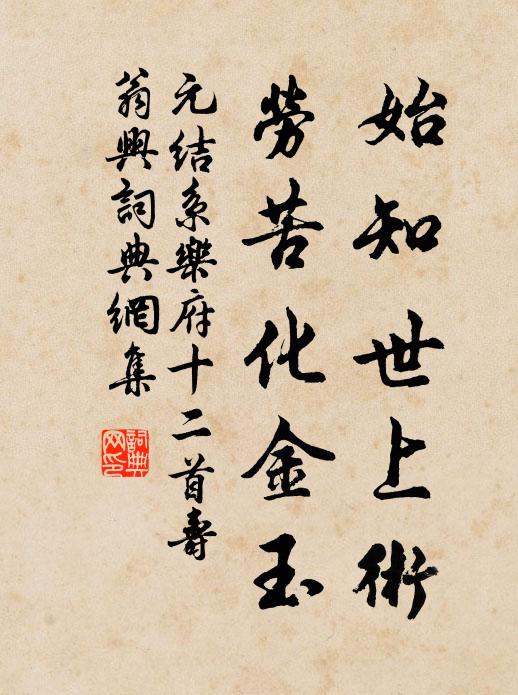 始知世上術
勞苦化金玉
元結系樂府十二首壽
翁興詞典網集
詞典
网印